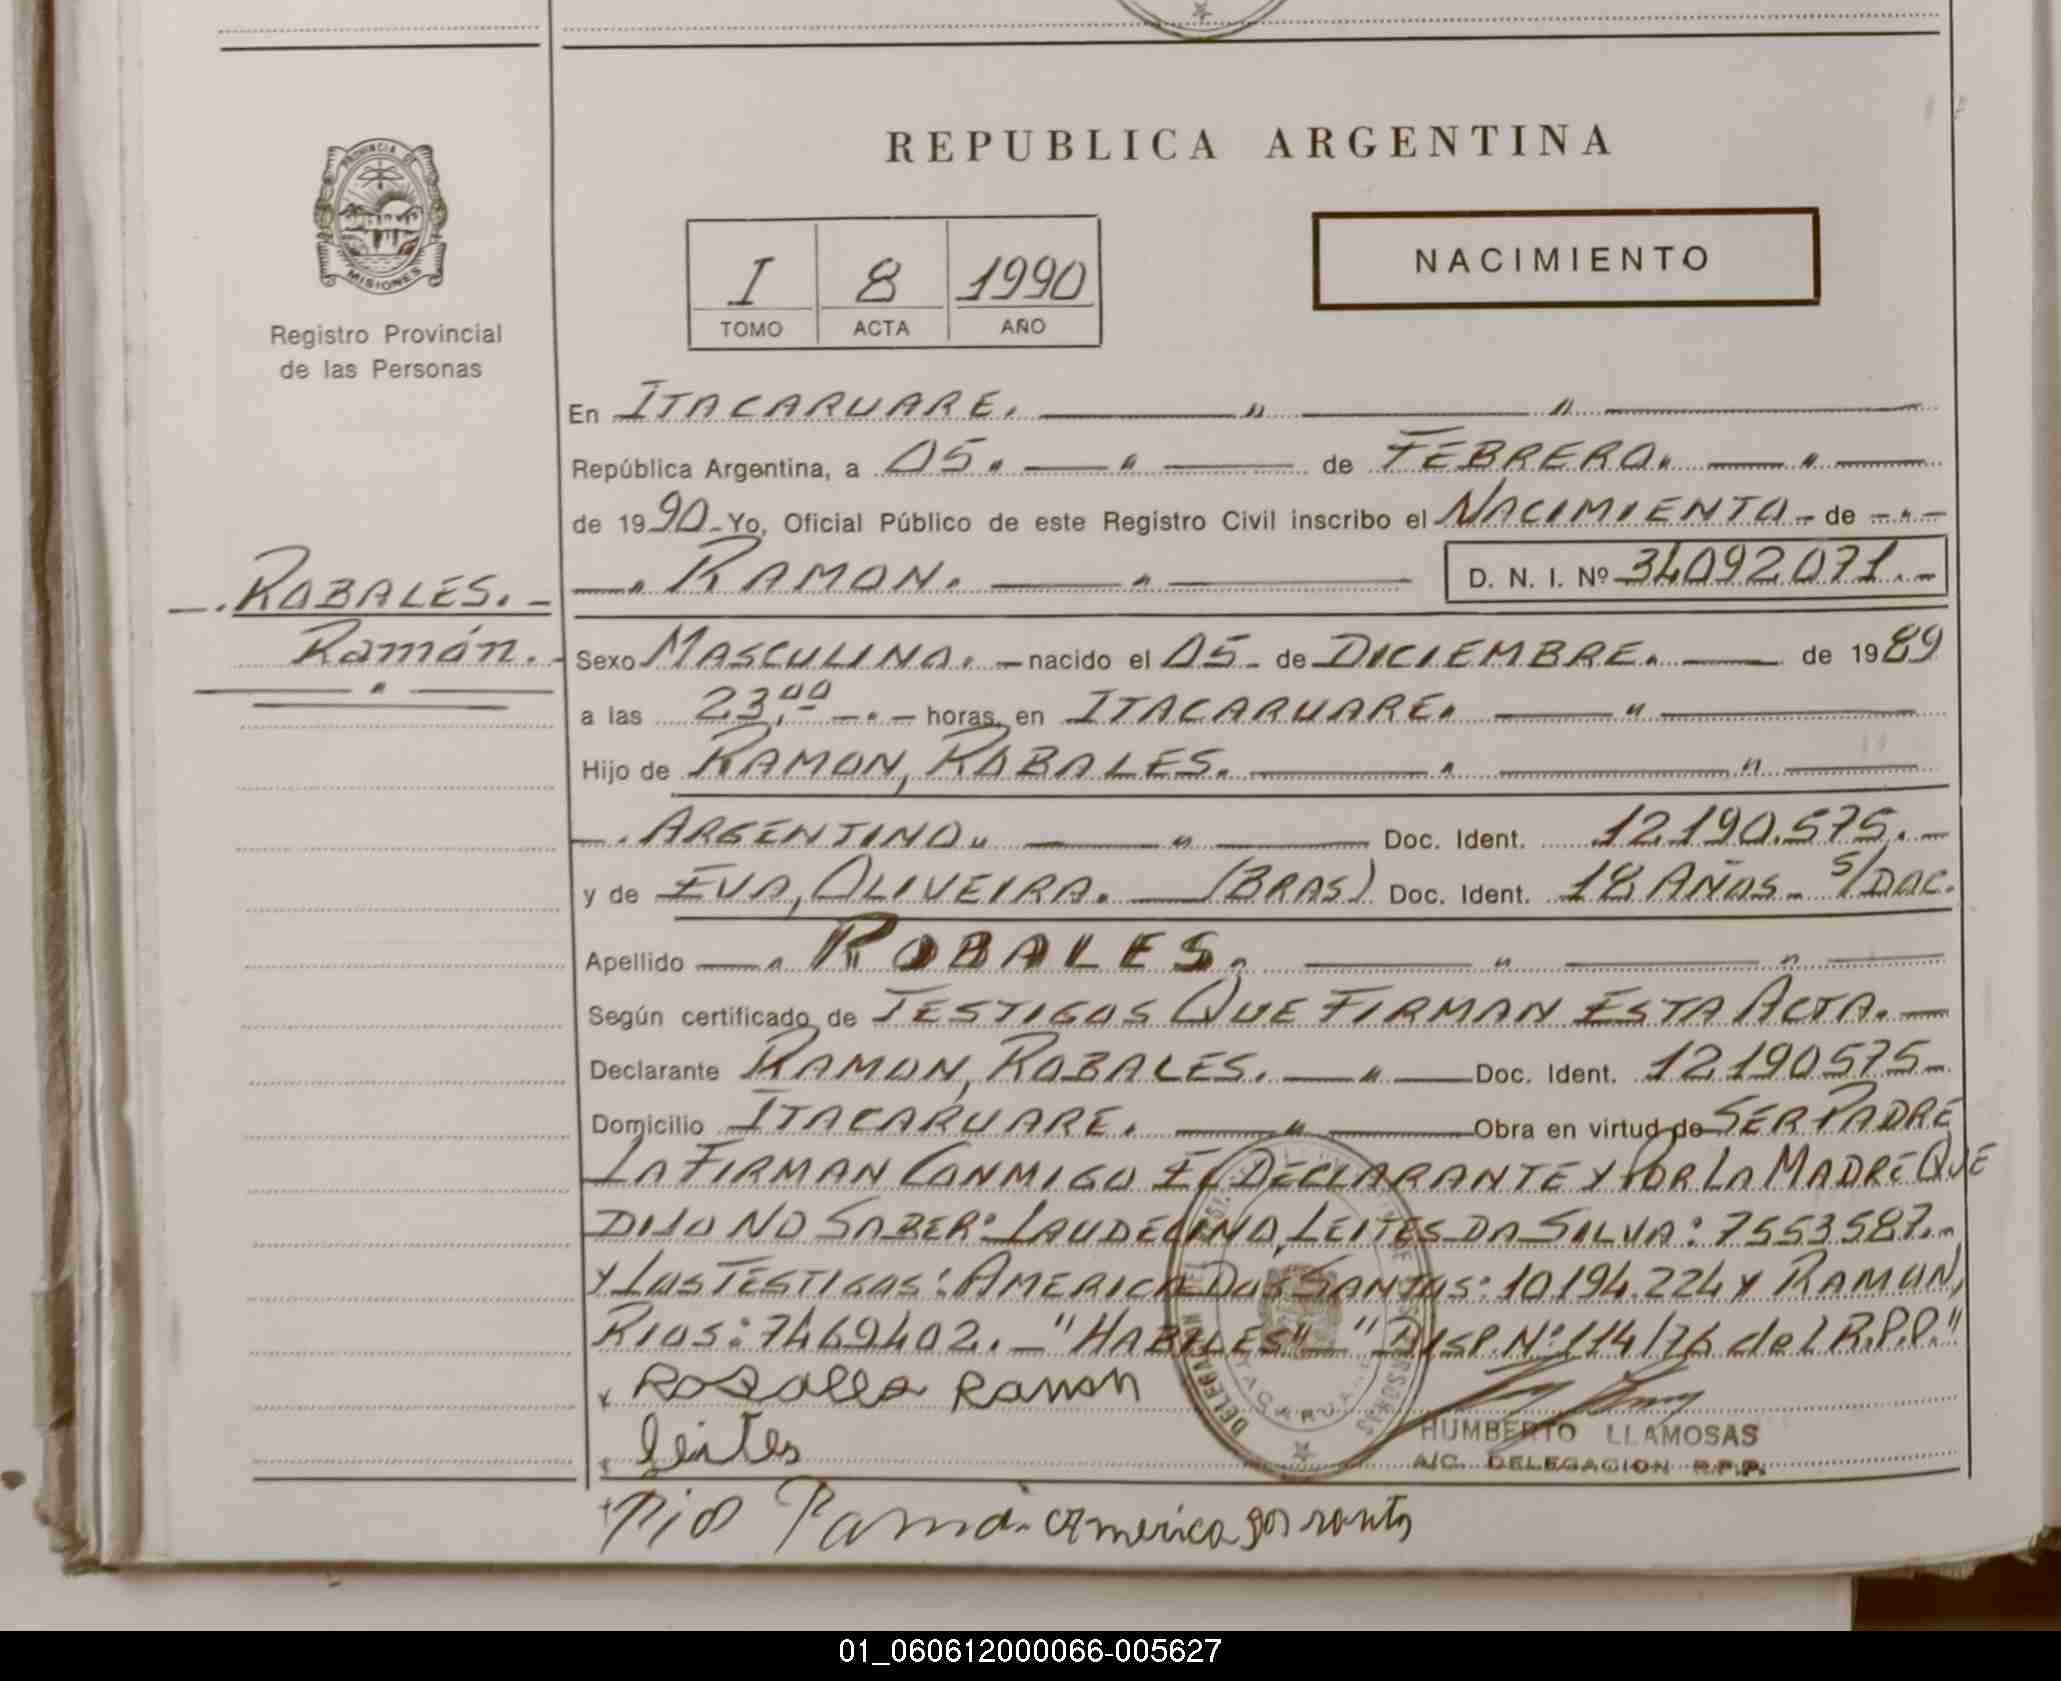 REPUBLICA ARGENTINA
PROVINCIA DE
MISIONES
Registro Provincial
de las Personas
I 8 1990
TOMO ACTA AÑO
NACIMIENTO
En ITACARUARE.
República Argentina, a 05. de FEBRERO.
de 1990- Yo, Oficial Público de este Registro Civil inscribo el NACIMIENTO - de
RAMON. D. N. I. Nº 34092071.-
ROBALES.-
Ramón.-
Sexo MASCULINO. - nacido el 05 - de DICIEMBRE. de 1989
a las 23,00 horas, en ITACARUARE.
Hijo de RAMON, ROBALES.
ARGENTINO. Doc. Ident. 12.190.575.-
y de EVA, OLIVEIRA. (BRAS) Doc. Ident. 18 AÑOS - S/DOC.
Apellido ROBALES.
Según certificado de TESTIGOS QUE FIRMAN ESTA ACTA.-
Declarante RAMON, ROBALES. Doc. Ident. 12190575-
Domicilio ITACARUARE. Obra en virtud de SER PADRE
LA FIRMAN CONMIGO EL DECLARANTE Y POR LA MADRE QUE
DIJO NO SABER: LAUDELINO, LEITES DA SILVA: 7553587.-
Y LOS TESTIGOS: AMERICA DOS SANTOS: 10194.224 Y RAMON,
RIOS: 7469402.- "HABILES" - "DISP. Nº 114/76 del R.P.P."
Ramon
leites
HUMBERTO LLAMOSAS
A/C. DELEGACION R.P.P.
America
01_060612000066-005627